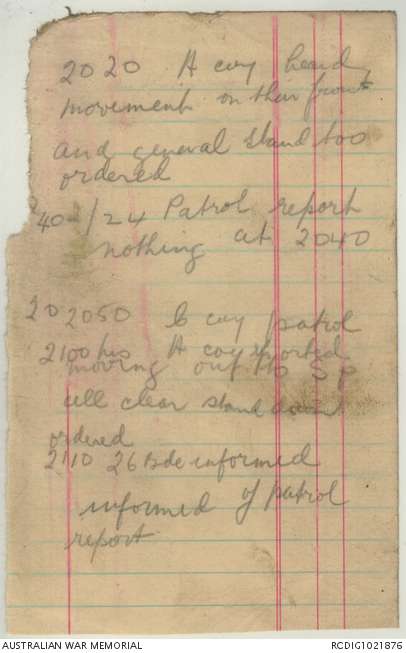 2020 A coy heard
movement on their front
and general stand too
ordered
2040 /24 Patrol report
nothing at 2040
20 2050 C coy patrol
2100 hrs A coy reported
moving out to S P
all clear stand down
ordered
2110 26 Bde informed
informed of patrol
report
AUSTRALIAN WAR MEMORIAL
RCDIG1021876